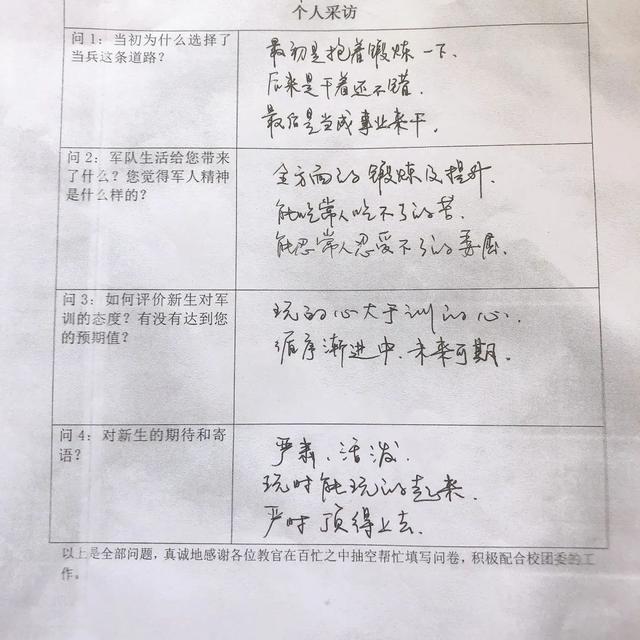 个人采访
问 1：当初为什么选择了
当兵这条道路？
最初是抱着锻炼一下.
后来是干着还不错.
最后是当成事业来干.
问 2：军队生活给您带来
了什么？您觉得军人精神
是什么样的？
全方面的锻炼及提升.
能吃常人吃不了的苦.
能忍常人忍受不了的委屈.
问 3：如何评价新生对军
训的态度？有没有达到您
的预期值？
玩的心大于训的心.
循序渐进中.未来可期.
问 4：对新生的期待和寄
语？
严肃、活泼.
玩时能玩的起来.
严时顶得上去.
以上是全部问题，真诚地感谢各位教官在百忙之中抽空帮忙填写问卷，积极配合校团委的工
作。